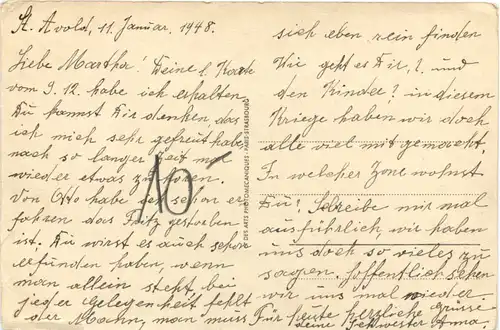 St. Avold, 11. Januar, 1948.
Liebe Martha! Deine l. Karte
vom 9.12. habe ich erhalten.
Du kannst Dir denken, das
ich mich sehr gefreut habe,
nach so langer Zeit mal
wieder etwas zu hören.
Von Otto habe ich schon er-
fahren das Fritz gestorben
ist. Du wirst es auch schon
erfunden haben, wenn
man allein steht, bei
jeder Gelegenheit fehlt
der Mann, man muss
10
DES ARTS PHOTOMECANIQUES - PARIS-STRASBOURG
sich eben rein finden
Wie geht es Dir,?, und
den Kinder? in diesem
Kriege haben wir doch
alle viel mit gemacht.
In welcher Zone wohnst
Du? Schreibe mir mal
ausführlich, wir haben
uns doch so vieles zu
sagen. Hoffentlich sehen
wir uns mal wieder.
Für heute herzliche Grüsse
deine Schwester Anna